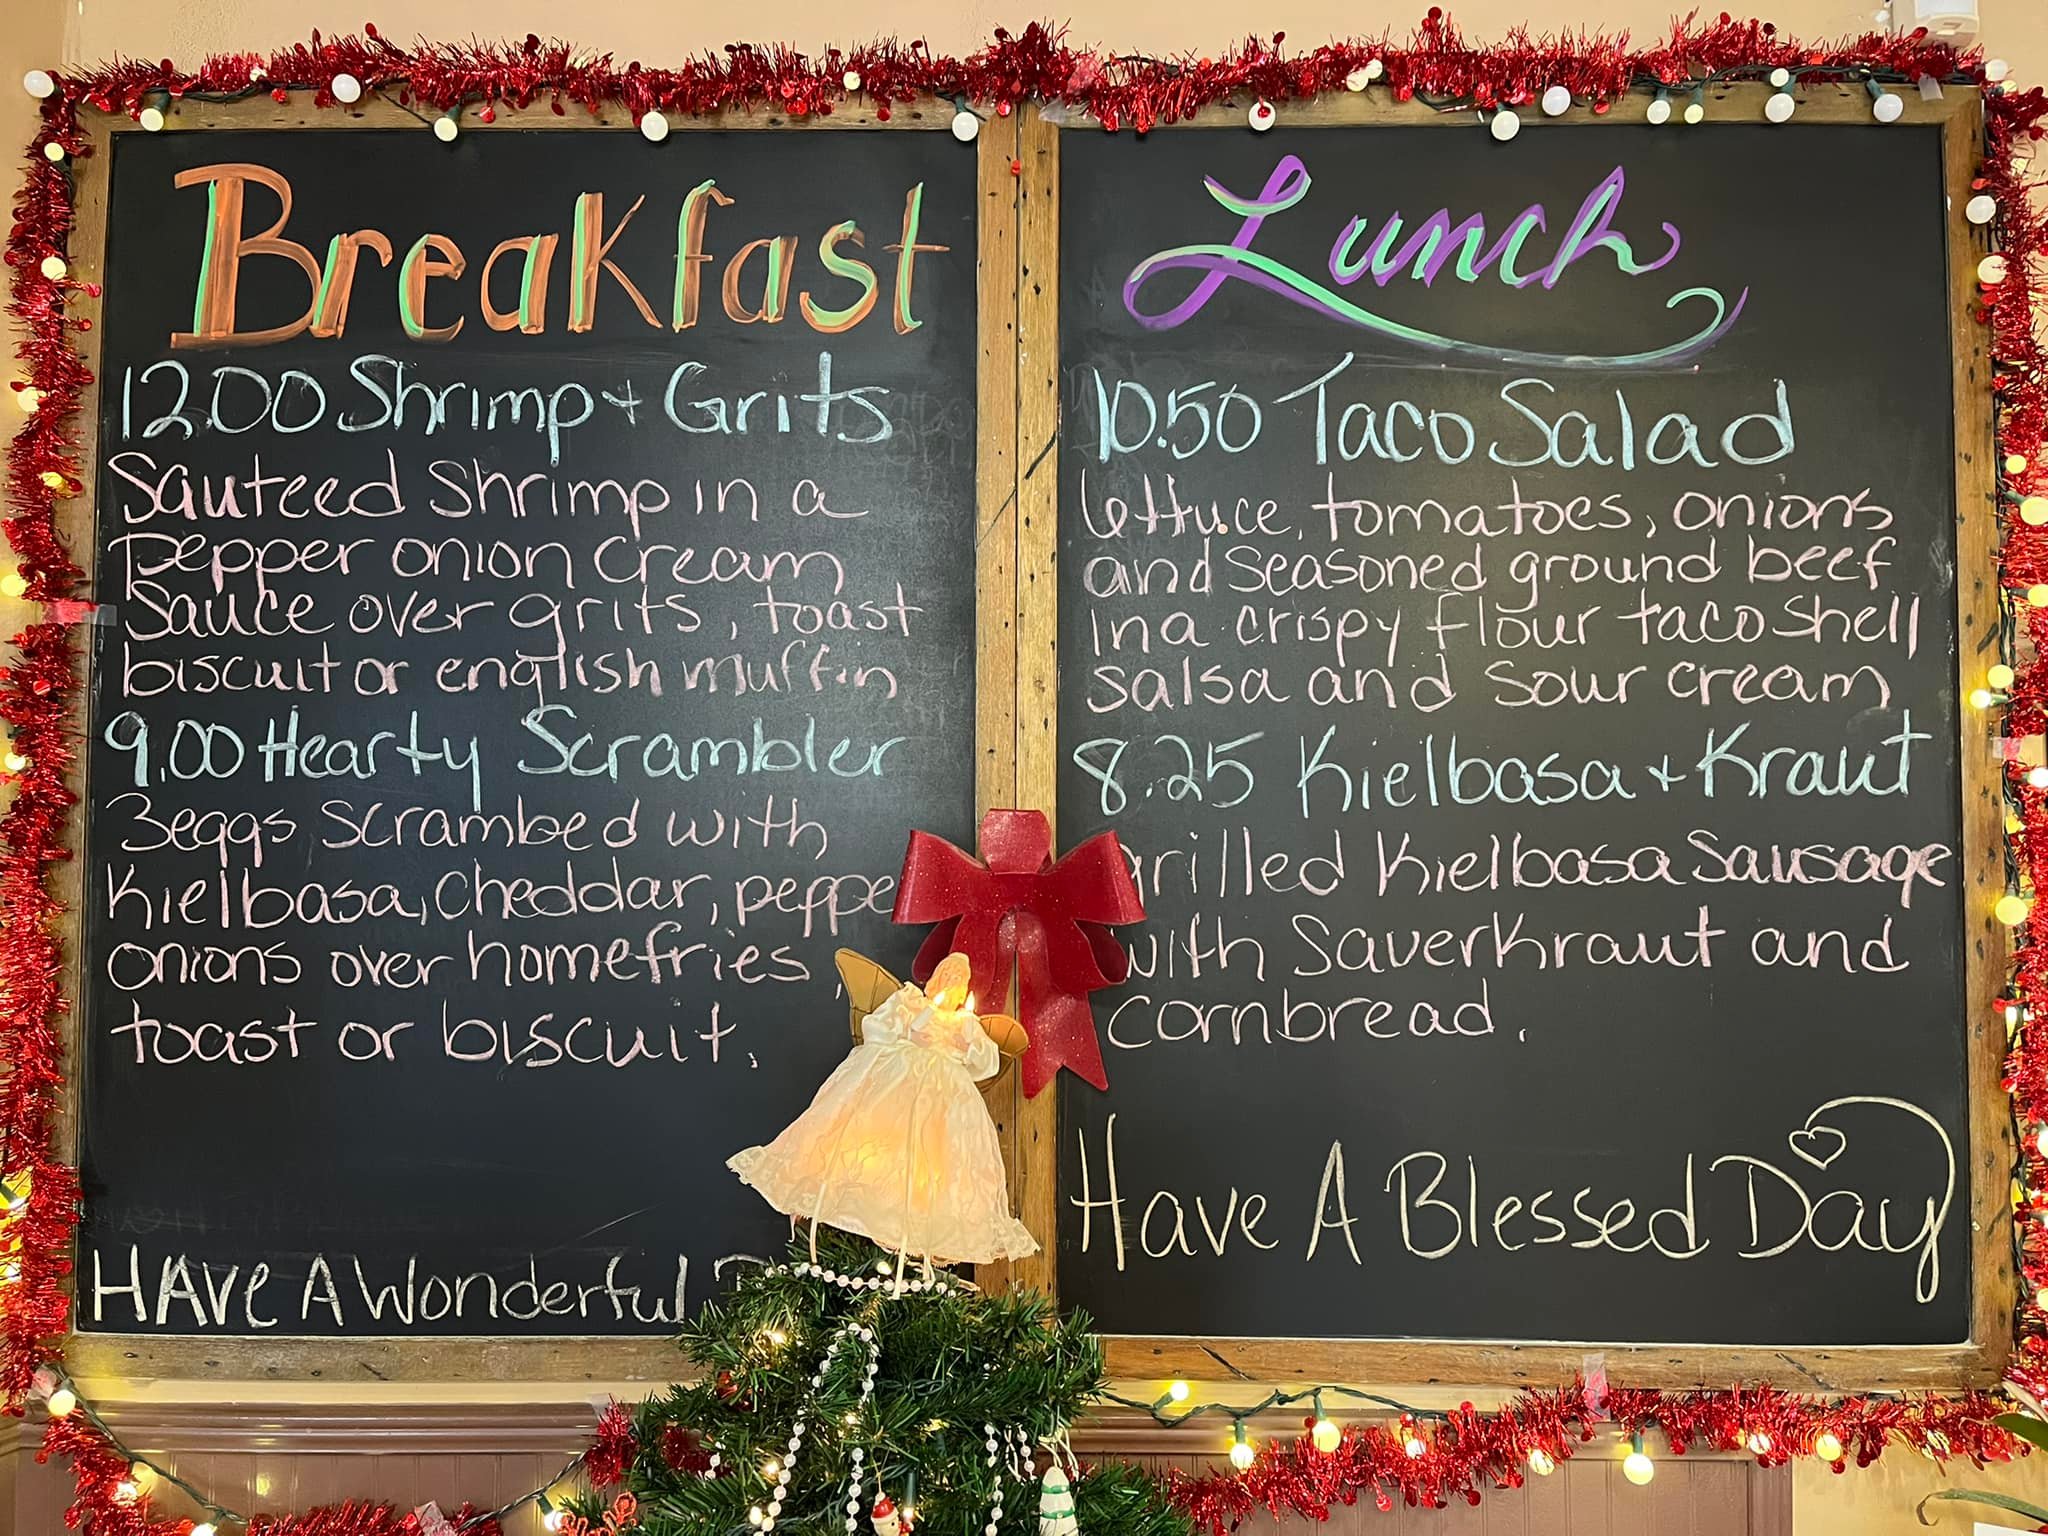 Breakfast
12.00 Shrimp + Grits
Sauteed Shrimp in a
pepper onion cream
Sauce over grits, toast
biscuit or english muffin
9.00 Hearty Scrambler
3 eggs scrambed with
Kielbasa, cheddar, peppe
onions over homefries,
toast or biscuit.
HAve A Wonderful
Lunch
10.50 Taco Salad
lettuce, tomatoes, onions
and seasoned ground beef
in a crispy flour taco shell
salsa and sour cream
8.25 Kielbasa + Kraut
grilled Kielbasa Sausage
with Saverkraut and
cornbread.
Have A Blessed Day